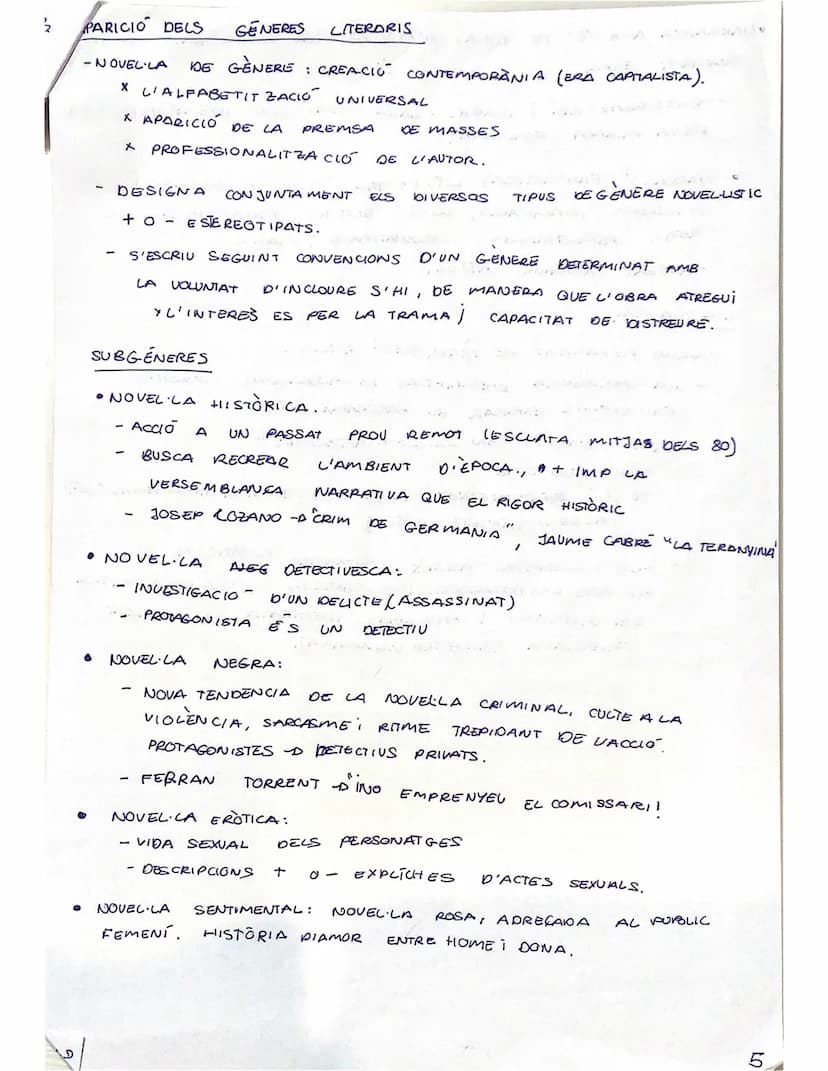 PARICIÓ DELS GÉNERES LITERARIS
- NOVEL·LA DE GÈNERE : CREACIÓ CONTEMPORÀNIA (ERA CAPITALISTA).
x L'ALFABETITZACIÓ UNIVERSAL
x APARICIÓ DE LA PREMSA DE MASSES
x PROFESSIONALITZACIÓ DE L'AUTOR.
- DESIGNA CONJUNTAMENT ELS DIVERSOS TIPUS DE GÈNERE NOVEL·LISTIC
+ O - ESTEREOTIPATS.
- S'ESCRIU SEGUINT CONVENCIONS D'UN GÈNERE DETERMINAT AMB
LA VOLUNTAT D'INCLOURE S'HI, DE MANERA QUE L'OBRA ATREGUI
Y L'INTERÈS ES PER LA TRAMA I CAPACITAT DE DISTREURE.
SUBGÉNERES
• NOVEL·LA HISTÒRICA.
- ACCIÓ A UN PASSAT PROU REMOT (ESCLATA MITJAS DELS 80)
- BUSCA RECREAR L'AMBIENT D'ÈPOCA., + IMP LA
VERSEMBLANÇA NARRATIVA QUE EL RIGOR HISTÒRIC
- JOSEP LOZANO → "CRIM DE GERMANIA", JAUME CABRÉ "LA TERANYINA"
• NOVEL·LA DETECTIVESCA:
- INVESTIGACIO D'UN DELICTE (ASSASSINAT)
- PROTAGONISTA ÉS UN DETECTIU
• NOVEL·LA NEGRA:
- NOVA TENDÈNCIA DE LA NOVEL·LA CRIMINAL, CULTE A LA
VIOLÈNCIA, SARCASME i RITME TREPIDANT DE L'ACCIÓ.
PROTAGONISTES → DETECTIUS PRIVATS.
- FERRAN TORRENT → "NO EMPRENYEU EL COMISSARI!
• NOVEL·LA ERÒTICA:
- VIDA SEXUAL DELS PERSONATGES
- DESCRIPCIONS + O - EXPLÍCITES D'ACTES SEXUALS.
• NOVEL·LA SENTIMENTAL: NOVEL·LA ROSA, ADREÇADA AL PUBLIC
FEMENÍ. HISTÒRIA D'AMOR ENTRE HOME i DONA.
5